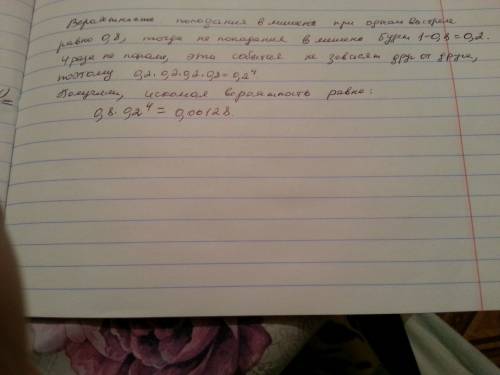 Вероятность попадания в мишень при одном выстреле
равно 0,8, тогда не попадания в мишень будет 1-0,8=0,2.
4 раза не попали, эти события не зависят друг от друга,
поэтому 0,2·0,2·0,2·0,2=0,2⁴
Получим, искомая вероятность равна:
0,8·0,2⁴=0,00128.